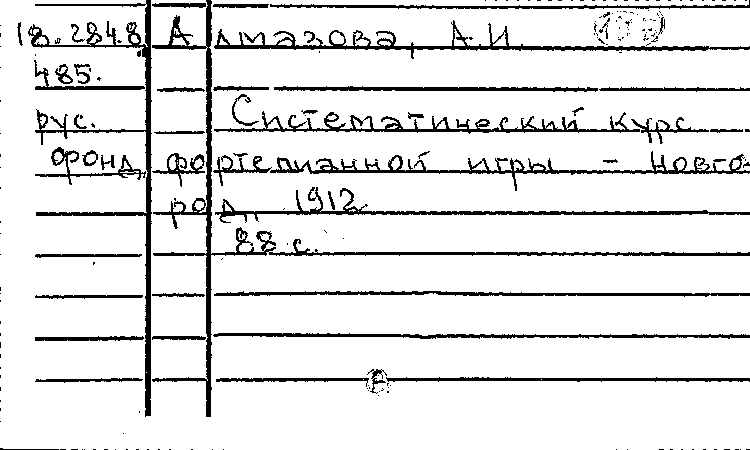 18.284.8 Алмазова, А.И.
485.
рус. Систематический курс
фонд фортепианной игры - Новго-
род, 1912
88 с.